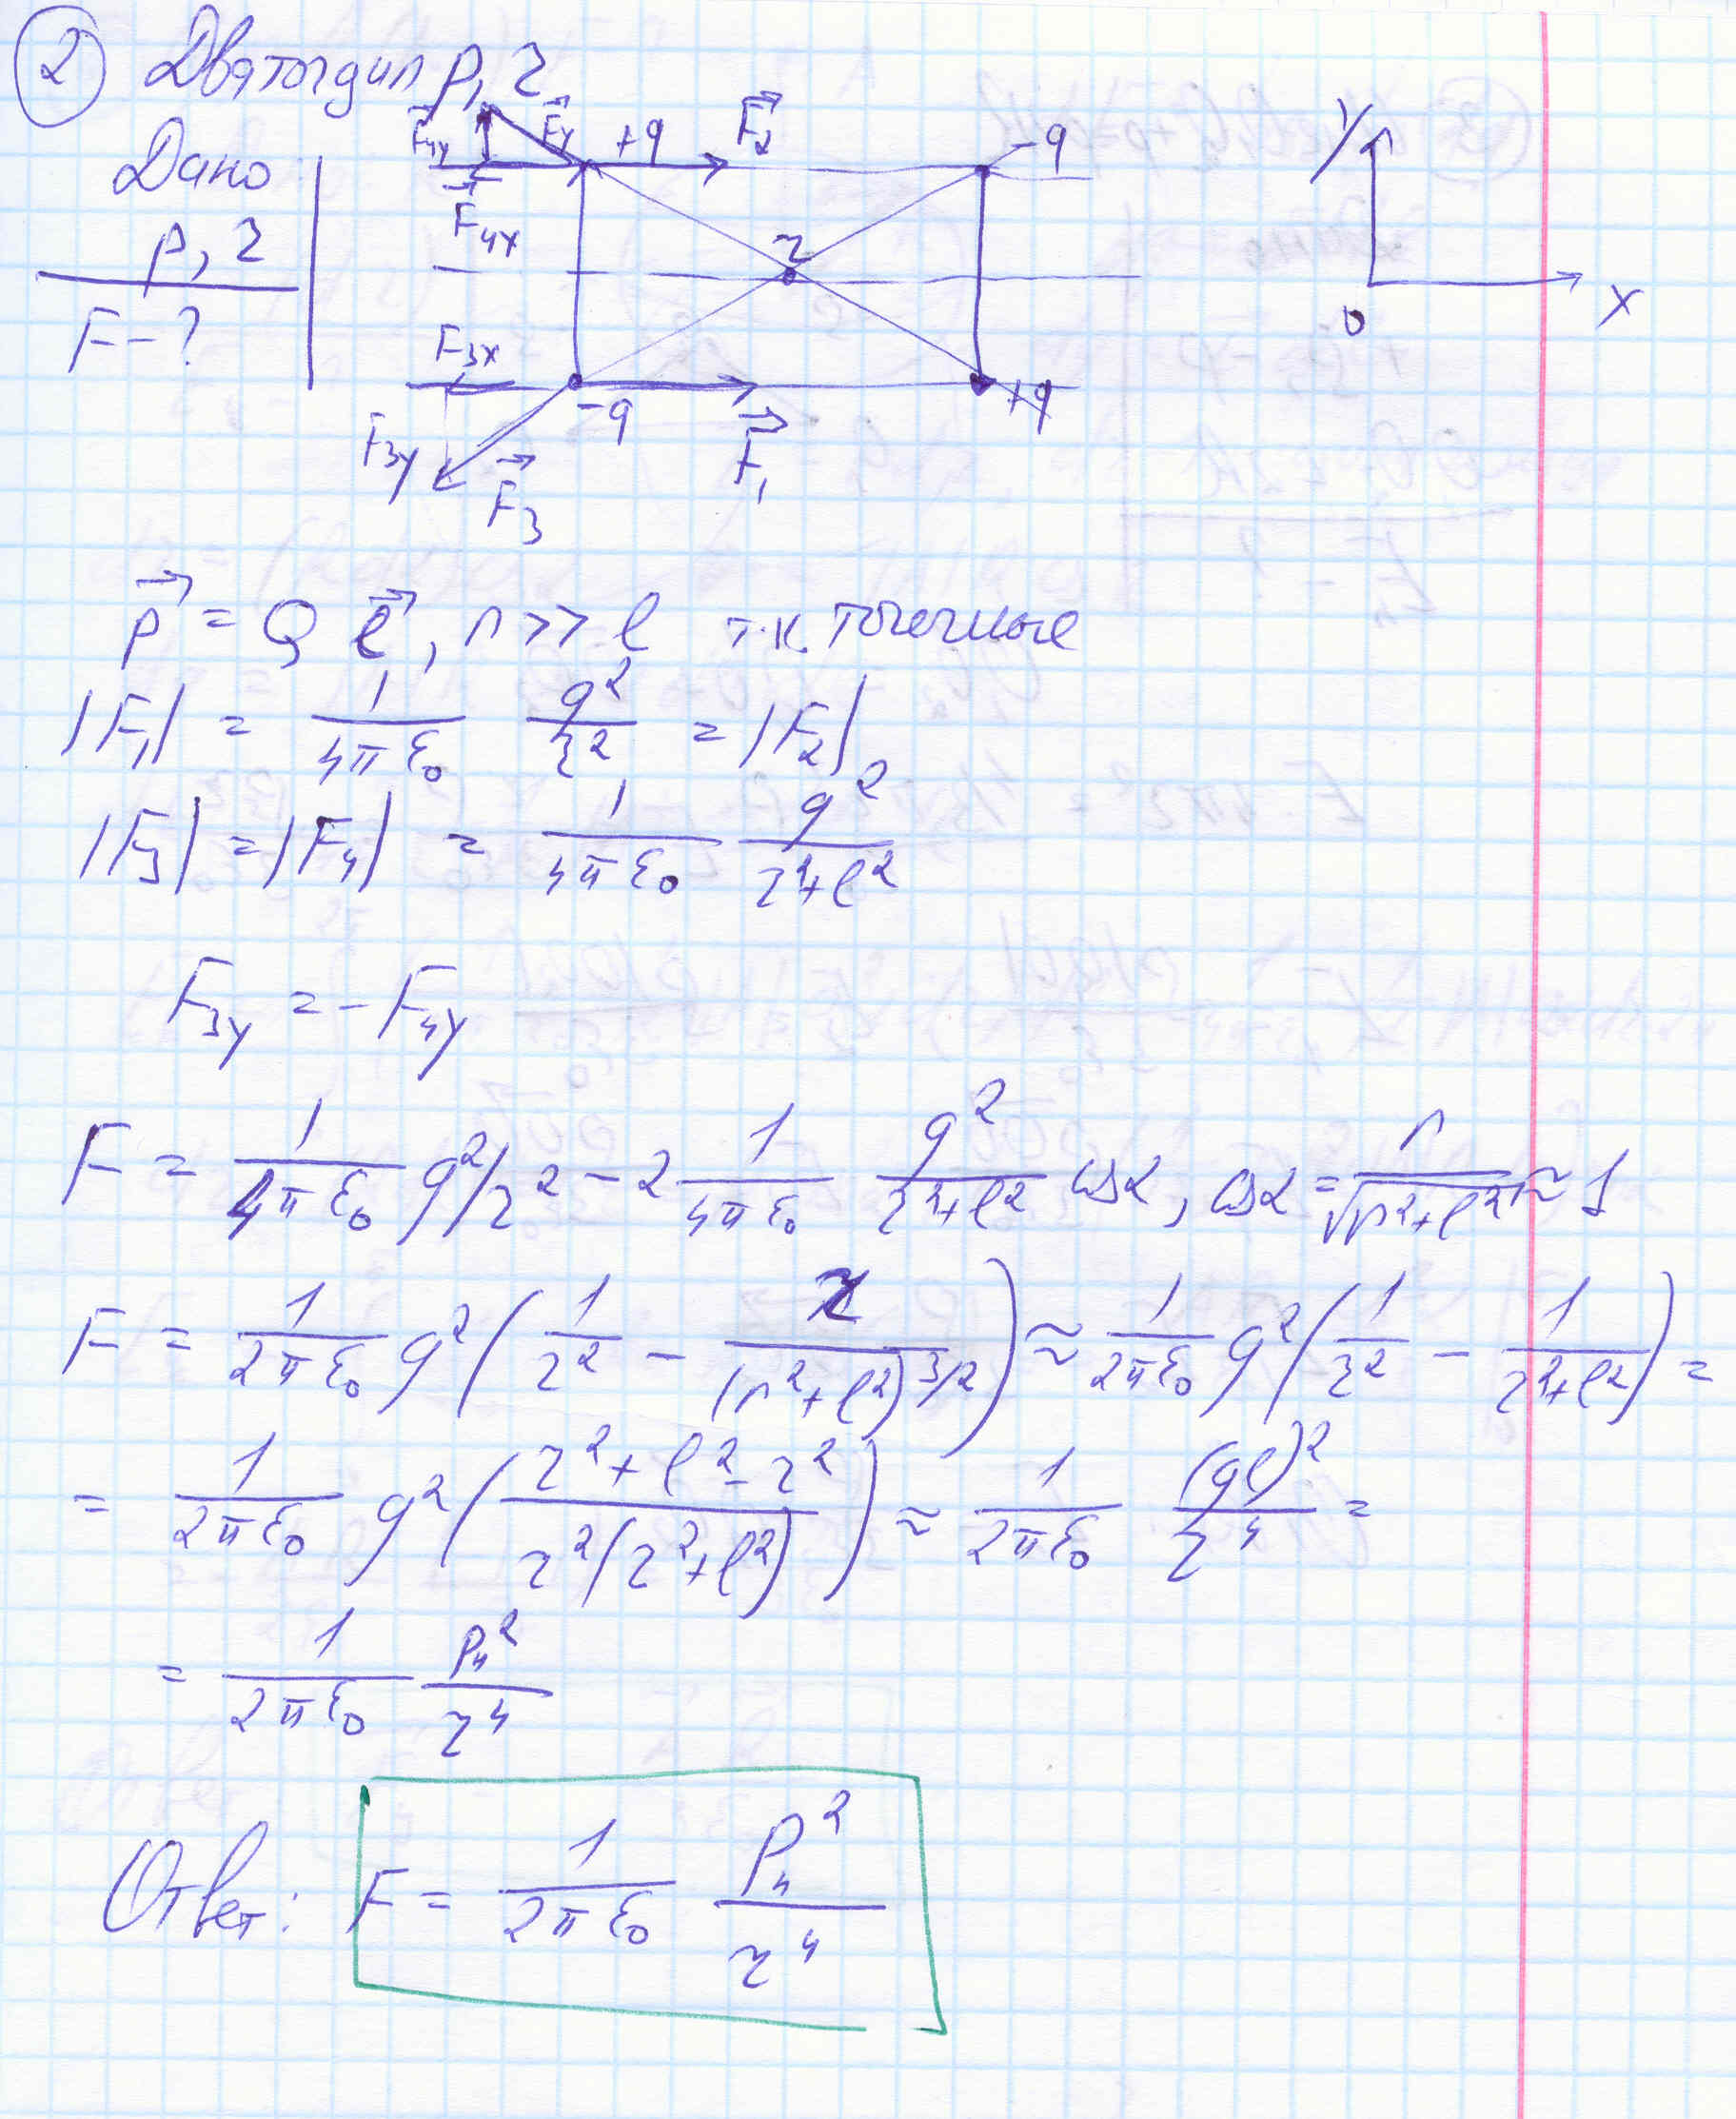 2 Два точ. дип p, r
Дано
p, r
F - ?
F4y F4 +q F2 -q
F4x
r
F3x
-q +q
F3y F3 F1
y
0 x
p = Q l, r >> l т.к. точечные
|F1| = 1/(4πε0) q²/r² = |F2|
|F3| = |F4| = 1/(4πε0) q²/(r²+l²)
F3y = -F4y
F = 1/(4πε0) q²/r² - 2 1/(4πε0) q²/(r²+l²) cos α, cos α = r/√(r²+l²) ≈ 1
F = 1/(2πε0) q² (1/r² - r/(r²+l²)^(3/2)) ≈ 1/(2πε0) q² (1/r² - 1/(r²+l²)) =
= 1/(2πε0) q² ((r²+l²-r²)/(r²(r²+l²))) ≈ 1/(2πε0) (ql)²/r⁴ =
= 1/(2πε0) p²/r⁴
Ответ: F = 1/(2πε0) p²/r⁴